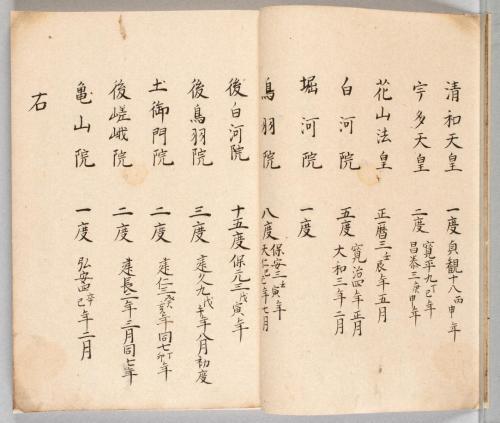 清和天皇 一度 貞観十八丙申年
宇多天皇 二度 寛平九丁巳年
昌泰三庚申年
花山法皇 正暦三壬辰年五月
白河院 五度 寛治四年正月
大和三年二月
堀河院 一度
鳥羽院 八度 保安三壬寅年
天仁二己年七月
後白河院 十五度 保元三戊寅年
後鳥羽院 三度 建久九戊午年八月初度
土御門院 二度 建仁三癸亥年同七丁卯年
後嵯峨院 二度 建長二年三月同七年
亀山院 一度 弘安四辛巳年二月
右